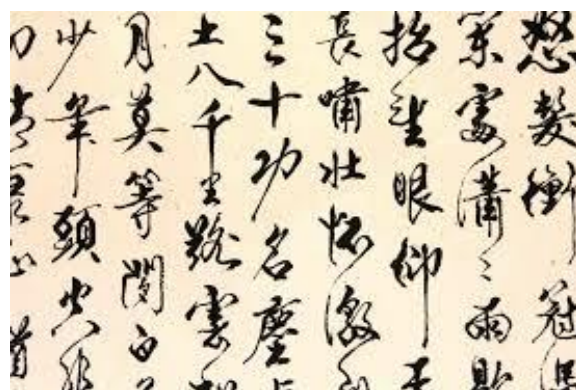 怒髮衝冠
處瀟〻雨歇
抬望眼仰天
長嘯壯懷激
三十功名塵与
土八千里路雲和
月莫等閒白了
少年頭空悲